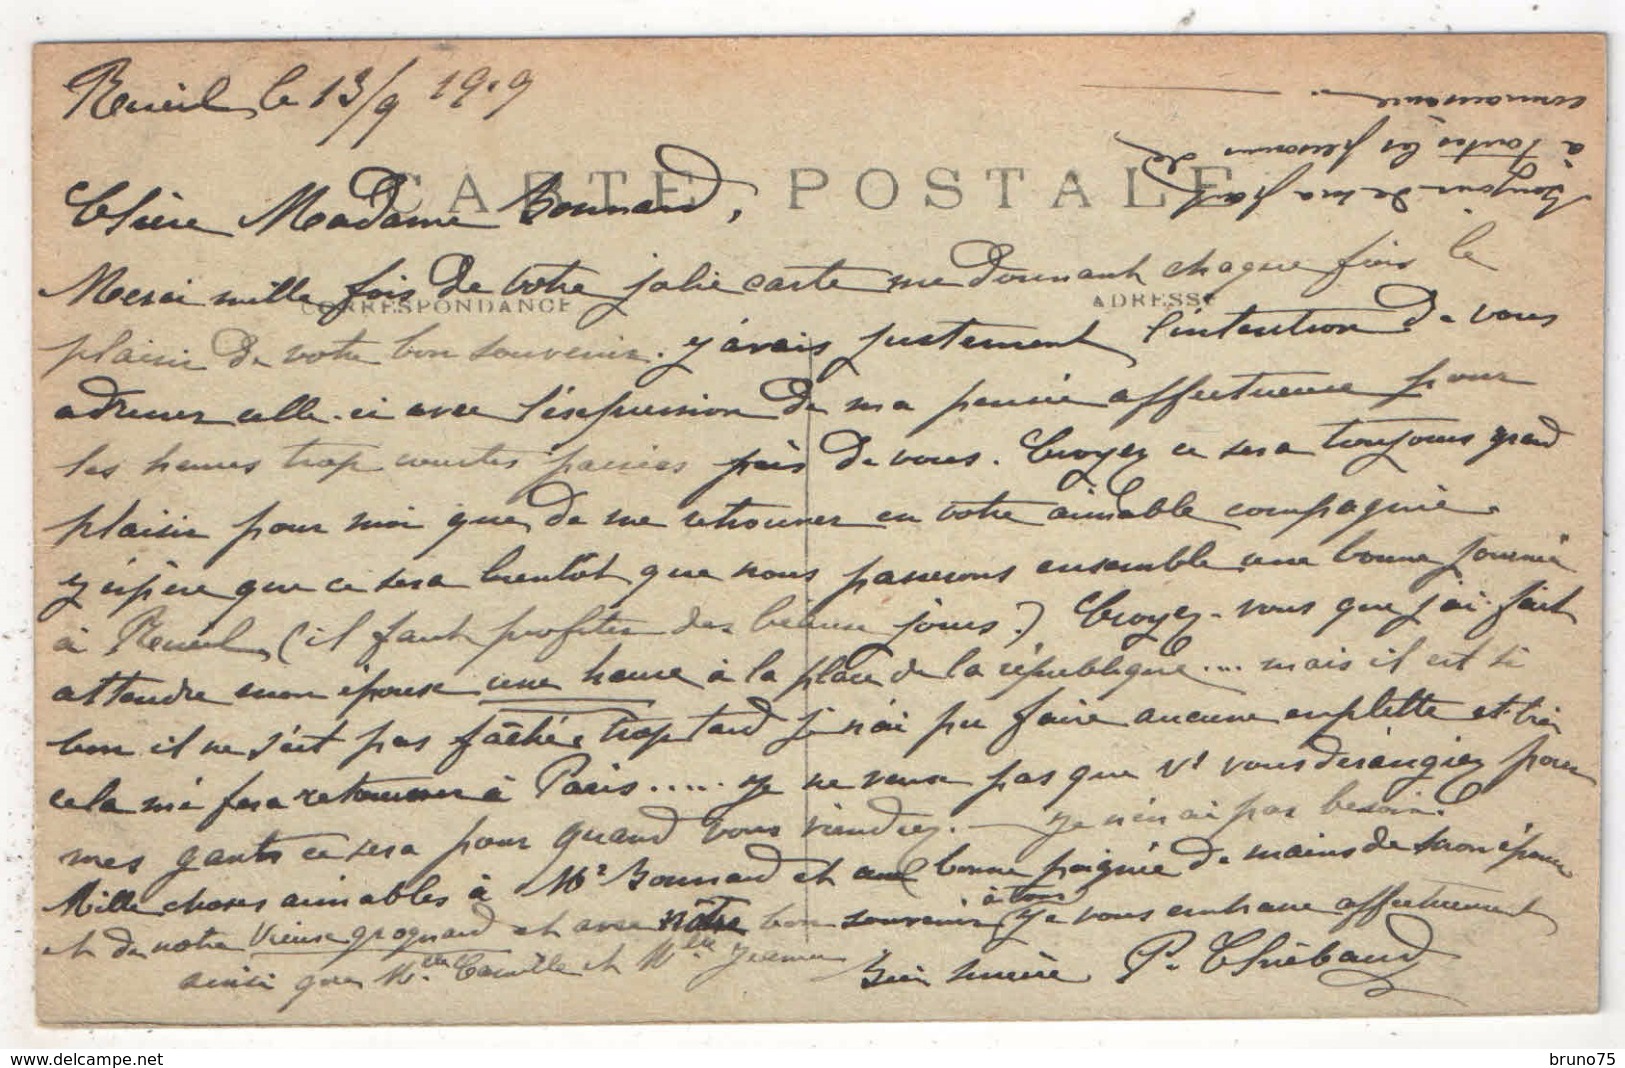 Rueil, le 13/9 1909
CARTE POSTALE
Chère Madame Bonnard,
Merci mille fois de votre jolie carte me donnant chaque fois le
CORRESPONDANCE
ADRESSE
plaisir de votre bon souvenir. j'avais justement l'intention de vous
adresser celle-ci avec l'expression de ma pensée affectueuse pour
les heures trop courtes passées près de vous. Croyez ce sera toujours grand
plaisir pour moi que de me retrouver en votre aimable compagnie.
j'espère que ce sera bientôt que nous passerons ensemble une bonne journée
à Rueil, (il faut profiter des beaux jours.) Croyez-vous que j'ai fait
attendre mon époux une heure à la place de la république.... mais il est si
bon il ne s'est pas fâché, trop tard je n'ai pu faire aucune emplette et
cela me fera retourner à Paris..... Je ne veux pas que vous dérangiez pour
mes gants ce sera pour quand vous viendrez. — Je n'en ai pas besoin.
Mille choses aimables à Mr Bonnard et une bonne poignée de mains de mon époux
et de notre vieux grognard et avec notre bon souvenir à tous je vous embrasse affectueusement
ainsi que Mlle Camille et Mlle
Bien sincère P. Thiébaud
Bonjour de ma part
à toutes les personnes de
connaissance.
www.delcampe.net
bruno75